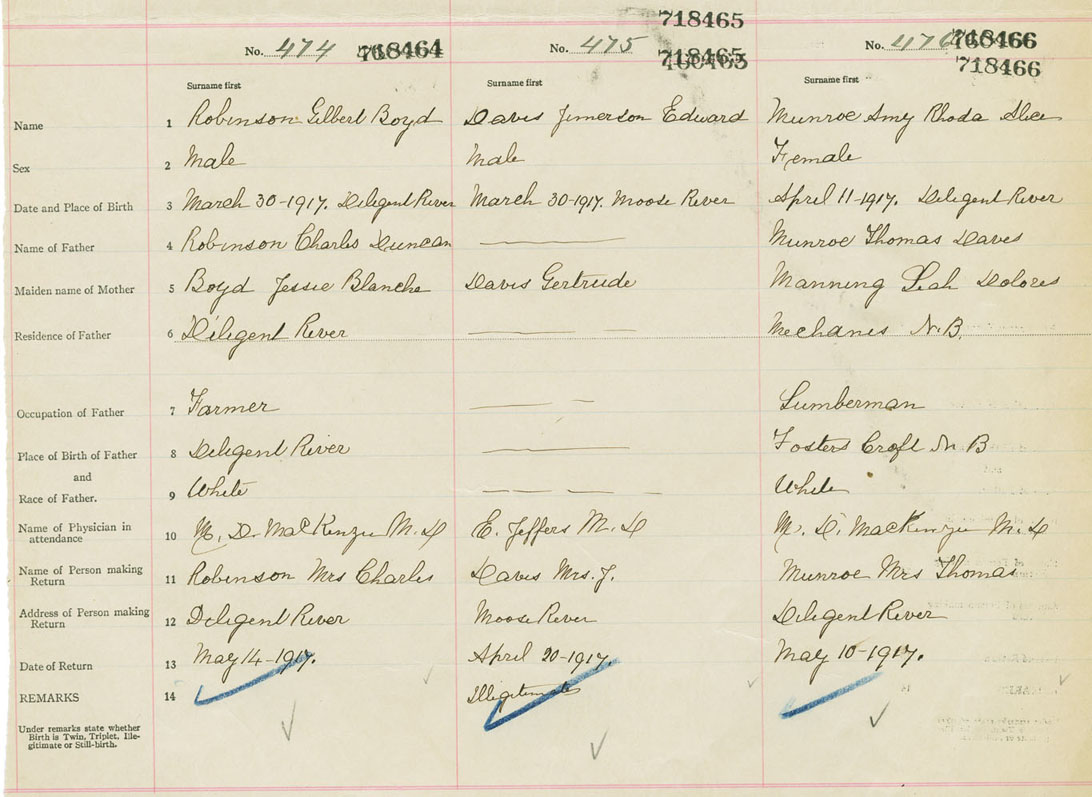 718465
No. 474 718464 No. 475 718465 No. 476 718466
718466
Surname first Surname first Surname first
Name 1 Robinson Gilbert Boyd Davis Jimerson Edward Munroe Amy Rhoda Alice
Sex 2 Male Male Female
Date and Place of Birth 3 March 30-1917. Diligent River March 30-1917. Moose River April 11-1917. Diligent River
Name of Father 4 Robinson Charles Duncan Munroe Thomas Daves
Maiden name of Mother 5 Boyd Jessie Blanche Davis Gertrude Manning Leah Dolores
Residence of Father 6 Diligent River Mechanis N.B.
Occupation of Father 7 Farmer Lumberman
Place of Birth of Father 8 Diligent River Fosters Croft N B
and
Race of Father. 9 White White
Name of Physician in
attendance 10 M. D. MacKenzie M.D E. Jeffers M.D M. D. MacKenzie M.D
Name of Person making
Return 11 Robinson Mrs Charles Davis Mrs. J. Munroe Mrs Thomas
Address of Person making
Return 12 Diligent River Moose River Diligent River
Date of Return 13 May 14-1917. April 20-1917. May 10-1917.
REMARKS 14 Illigetimate
Under remarks state whether
Birth is Twin, Triplet, Ille-
gitimate or Still-birth.